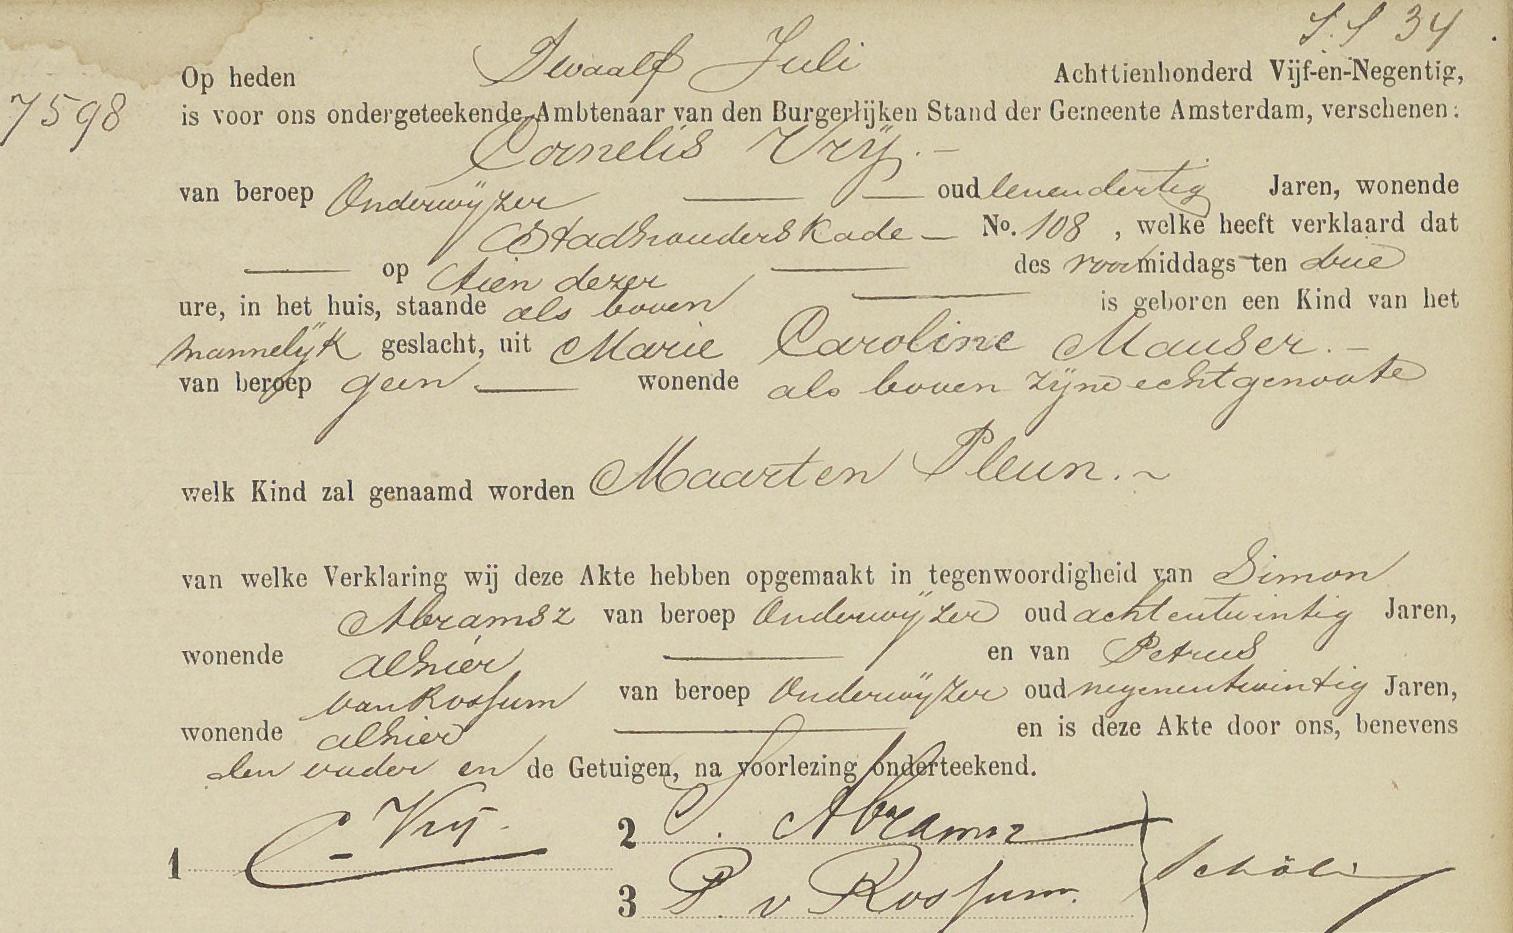 S.S 34
Op heden Twaalf Juli Achttienhonderd Vijf-en-Negentig,
7598
is voor ons ondergeteekende Ambtenaar van den Burgerlijken Stand der Gemeente Amsterdam, verschenen:
Cornelis Vrij. –
van beroep Onderwijzer — — oud zevendertig Jaren, wonende
Stadhouderskade – No. 108 , welke heeft verklaard dat
— op tien dezer — des voormiddags ten drie
ure, in het huis, staande als boven — is geboren een Kind van het
mannelijk geslacht, uit Marie Caroline Mauser. –
van beroep geen — wonende als boven zijne echtgenoote
welk Kind zal genaamd worden Maarten Pleun. ~
van welke Verklaring wij deze Akte hebben opgemaakt in tegenwoordigheid van Simon
Abramsz van beroep Onderwijzer oud achtentwintig Jaren,
wonende alhier — en van Petrus
van Rossum van beroep Onderwijzer oud negenentwintig Jaren,
wonende alhier — en is deze Akte door ons, benevens
den vader en de Getuigen, na voorlezing onderteekend.
1 C Vrij.
2 S. Abramsz
3 P. v Rossum.